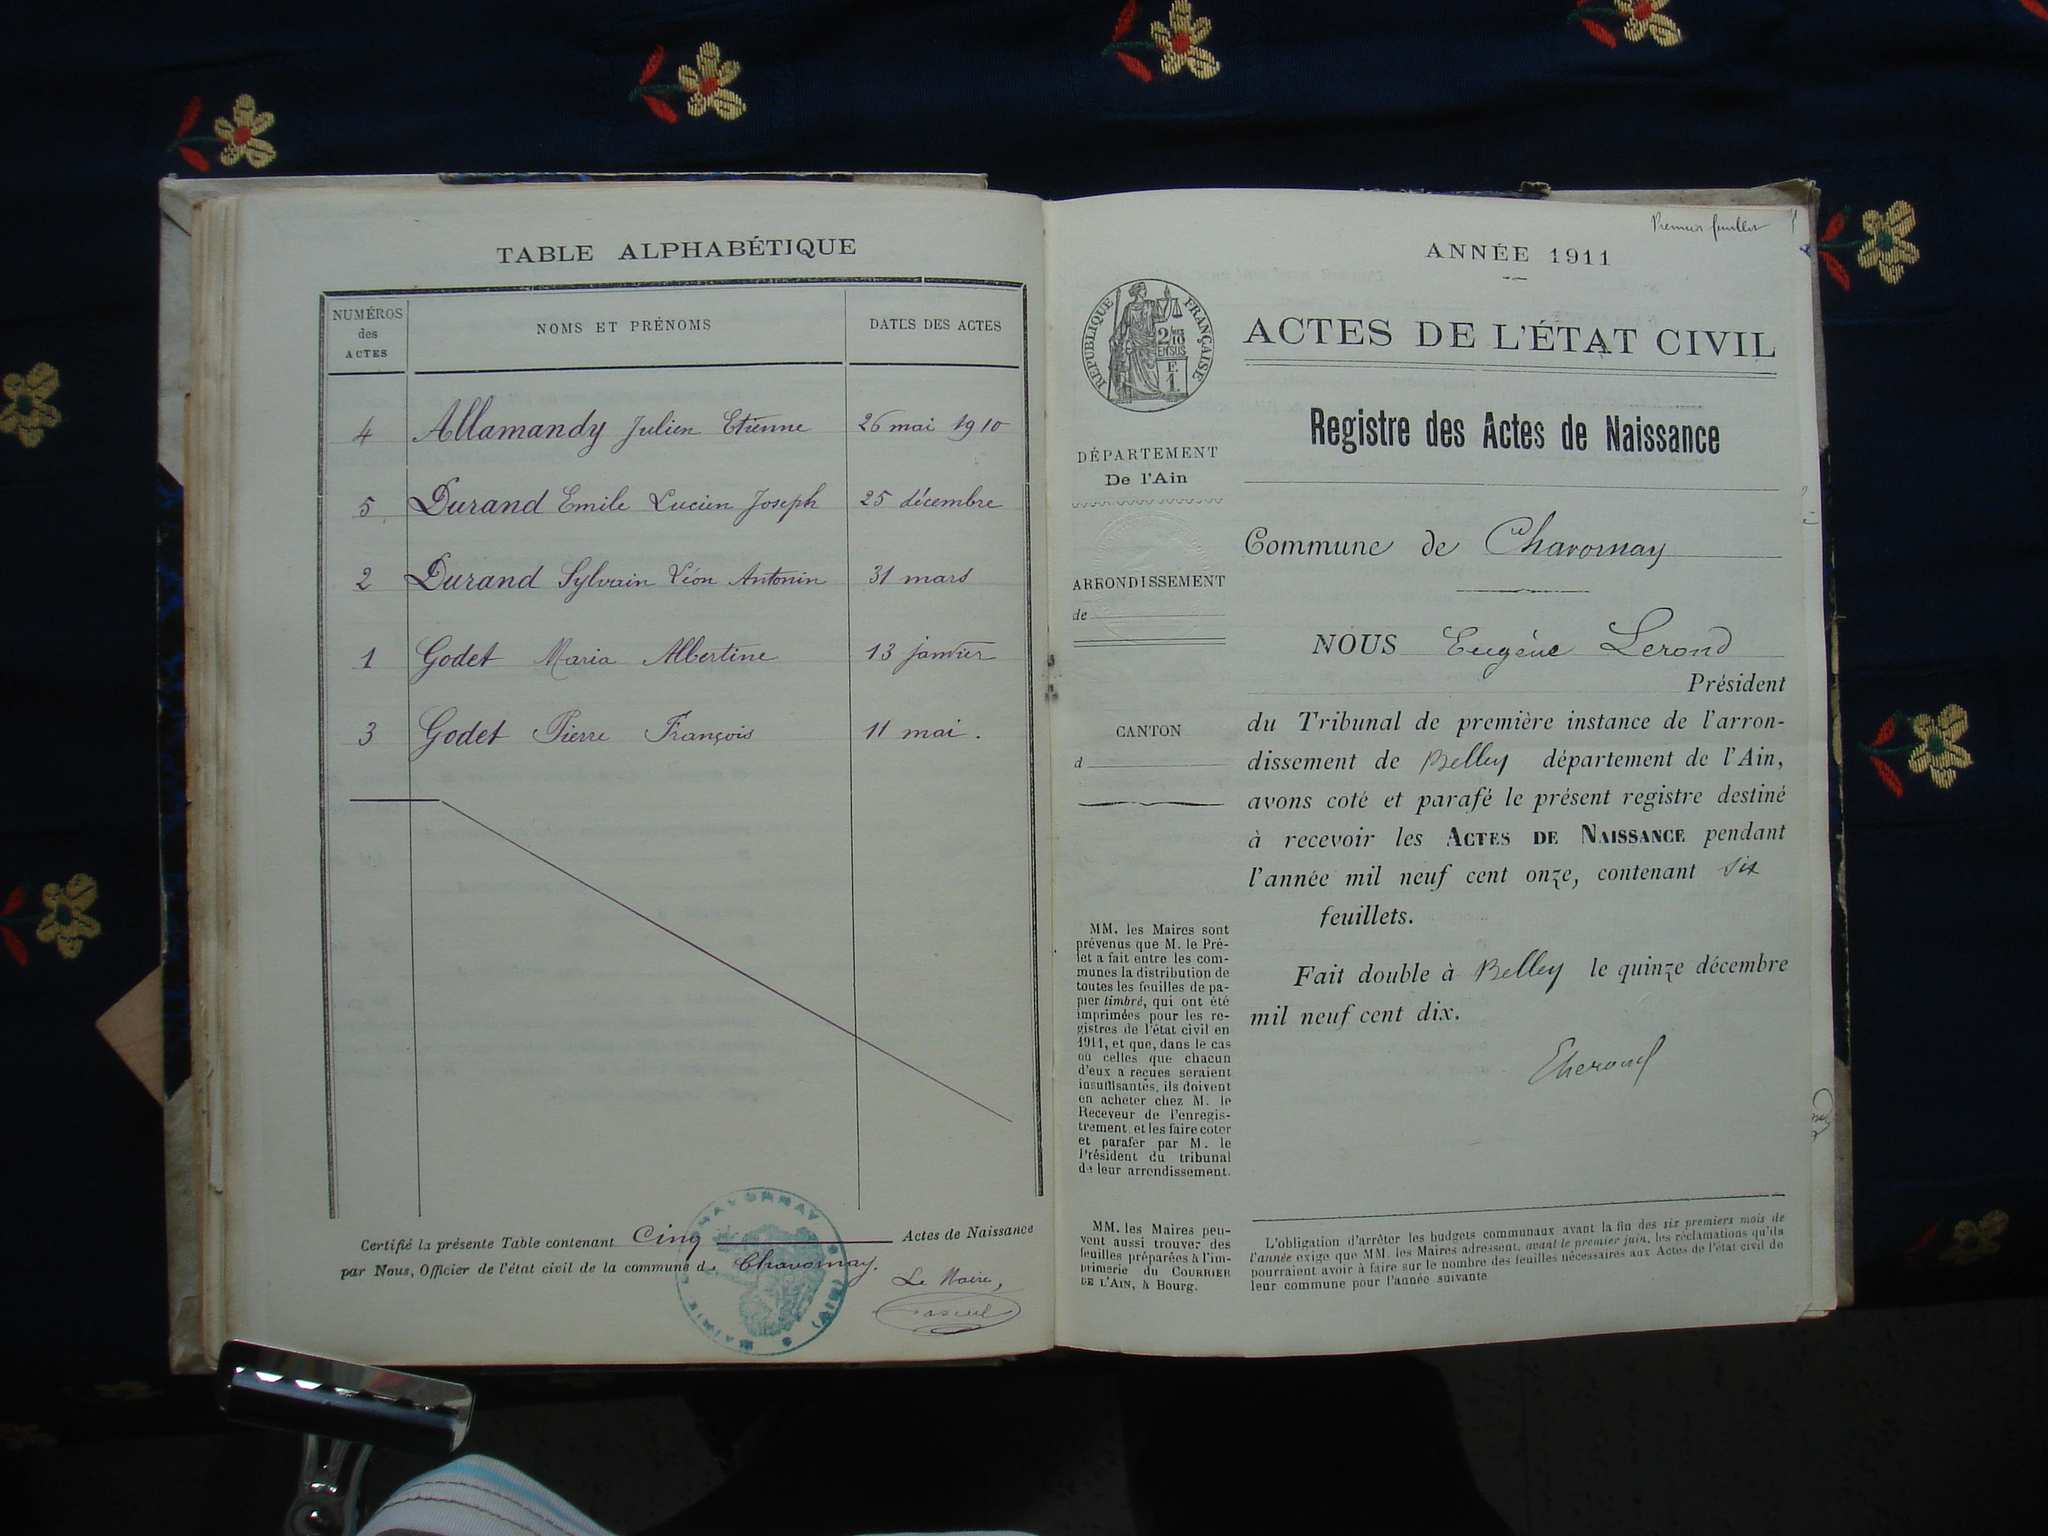 TABLE ALPHABÉTIQUE
NUMÉROS
des
ACTES
NOMS ET PRÉNOMS
DATES DES ACTES
4 Allamandy Julien Etienne 26 mai 1910
5 Durand Emile Lucien Joseph 25 décembre
2 Durand Sylvain Léon Antonin 31 mars
1 Godet Maria Albertine 13 janvier
3 Godet Pierre François 11 mai.
Certifié la présente Table contenant Cinq Actes de Naissance
par Nous, Officier de l'état civil de la commune de Chavornay.
Le Maire,
Premier feuillet
ANNÉE 1911
RÉPUBLIQUE FRANÇAISE
ACTES DE L'ÉTAT CIVIL
Registre des Actes de Naissance
DÉPARTEMENT
De l'Ain
Commune de Chavornay
ARRONDISSEMENT
de
CANTON
d
NOUS Eugène Lerond
Président
du Tribunal de première instance de l'arron-
dissement de Belley département de l'Ain,
avons coté et parafé le présent registre destiné
à recevoir les ACTES DE NAISSANCE pendant
l'année mil neuf cent onze, contenant six
feuillets.
Fait double à Belley le quinze décembre
mil neuf cent dix.
MM. les Maires sont
prévenus que M. le Pré-
fet a fait entre les com-
munes la distribution de
toutes les feuilles de pa-
pier timbré, qui ont été
imprimées pour les re-
gistres de l'état civil en
1911, et que, dans le cas
où celles que chacun
d'eux a reçues seraient
insuffisantes, ils doivent
en acheter chez M. le
Receveur de l'enregis-
trement, et les faire coter
et parafer par M. le
Président du tribunal
de leur arrondissement.
MM. les Maires peu-
vent aussi trouver des
feuilles préparées à l'im-
primerie du COURRIER
DE L'AIN, à Bourg.
L'obligation d'arrêter les budgets communaux avant la fin des six premiers mois de
l'année exige que MM. les Maires adressent, avant le premier juin, les réclamations qu'ils
pourraient avoir à faire sur le nombre des feuilles nécessaires aux Actes de l'état civil de
leur commune pour l'année suivante